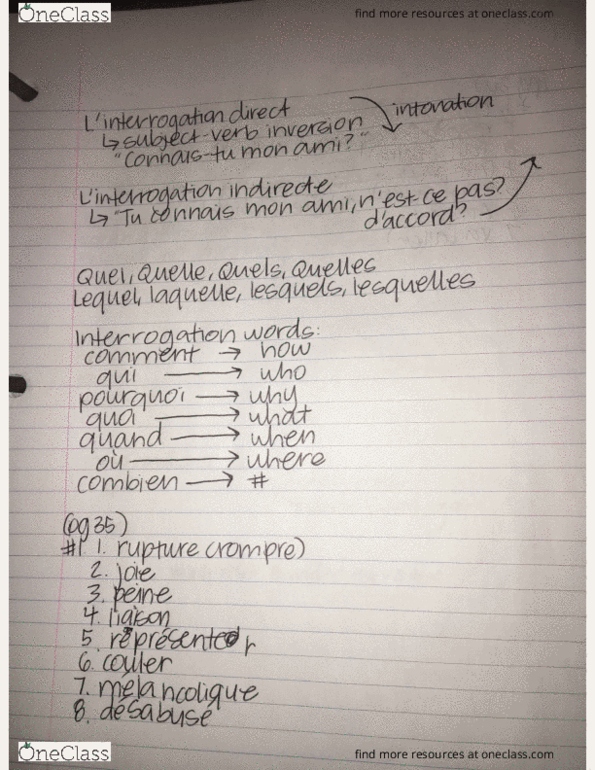 OneClass
find more resources at oneclass.com
L'interrogation direct
↳ subject-verb inversion
"Connais-tu mon ami?"
intonation
L'interrogation indirecte
↳ "Tu connais mon ami, n'est-ce pas?
d'accord?
Quel, Quelle, Quels, Quelles
Lequel, laquelle, lesquels, lesquelles
Interrogation words:
comment → how
qui → who
pourquoi → why
quoi → what
quand → when
où → where
combien → #
(pg 35)
#1 1. rupture (rompre)
2. joie
3. peine
4. liaison
5. représenter
6. couler
7. mélancolique
8. désabusé
OneClass
find more resources at oneclass.com